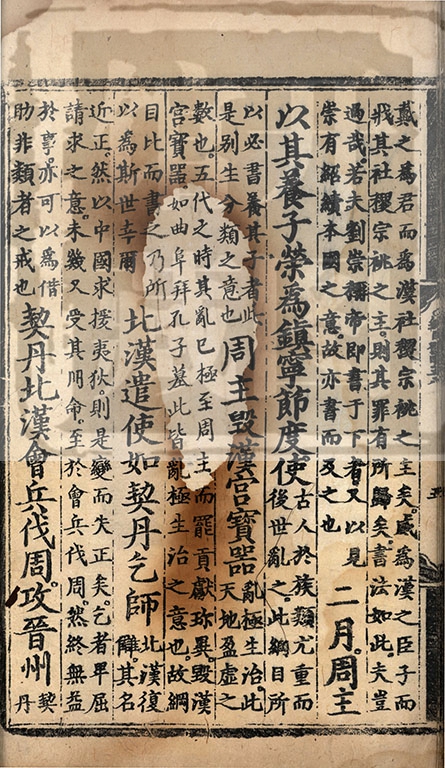 戴之為君而為漢社稷宗祧之主矣威為漢之臣子而
戕其社稷宗祧之主則其罪有所歸矣書法如此夫豈
過哉若夫劉崇稱帝即書于下者又以見
崇有經續本國之意故亦書而及之也
二月周主
以其養子榮為鎮寧節度使
古人於族類尤重而
後世亂之此綱目所
以必書養其子者此
是別生分類之意也
周主毀漢宮寶器
亂極生治此
天地盈虛之
數也五代之時其亂已極至周主而罷貢獻珍異毀漢
宮寶器如曲阜拜孔子墓此皆亂極生治之意也故綱
目比而書之乃所
以為斯世幸爾
北漢遣使如契丹乞師
北漢復
讎其名
近正然以中國求援夷狄則是變而失正矣乞者卑屈
請求之意未幾又受其冊命至於會兵伐周然終無益
於事亦可以為借
助非類者之戒也
契丹北漢會兵伐周攻晉州
契
丹